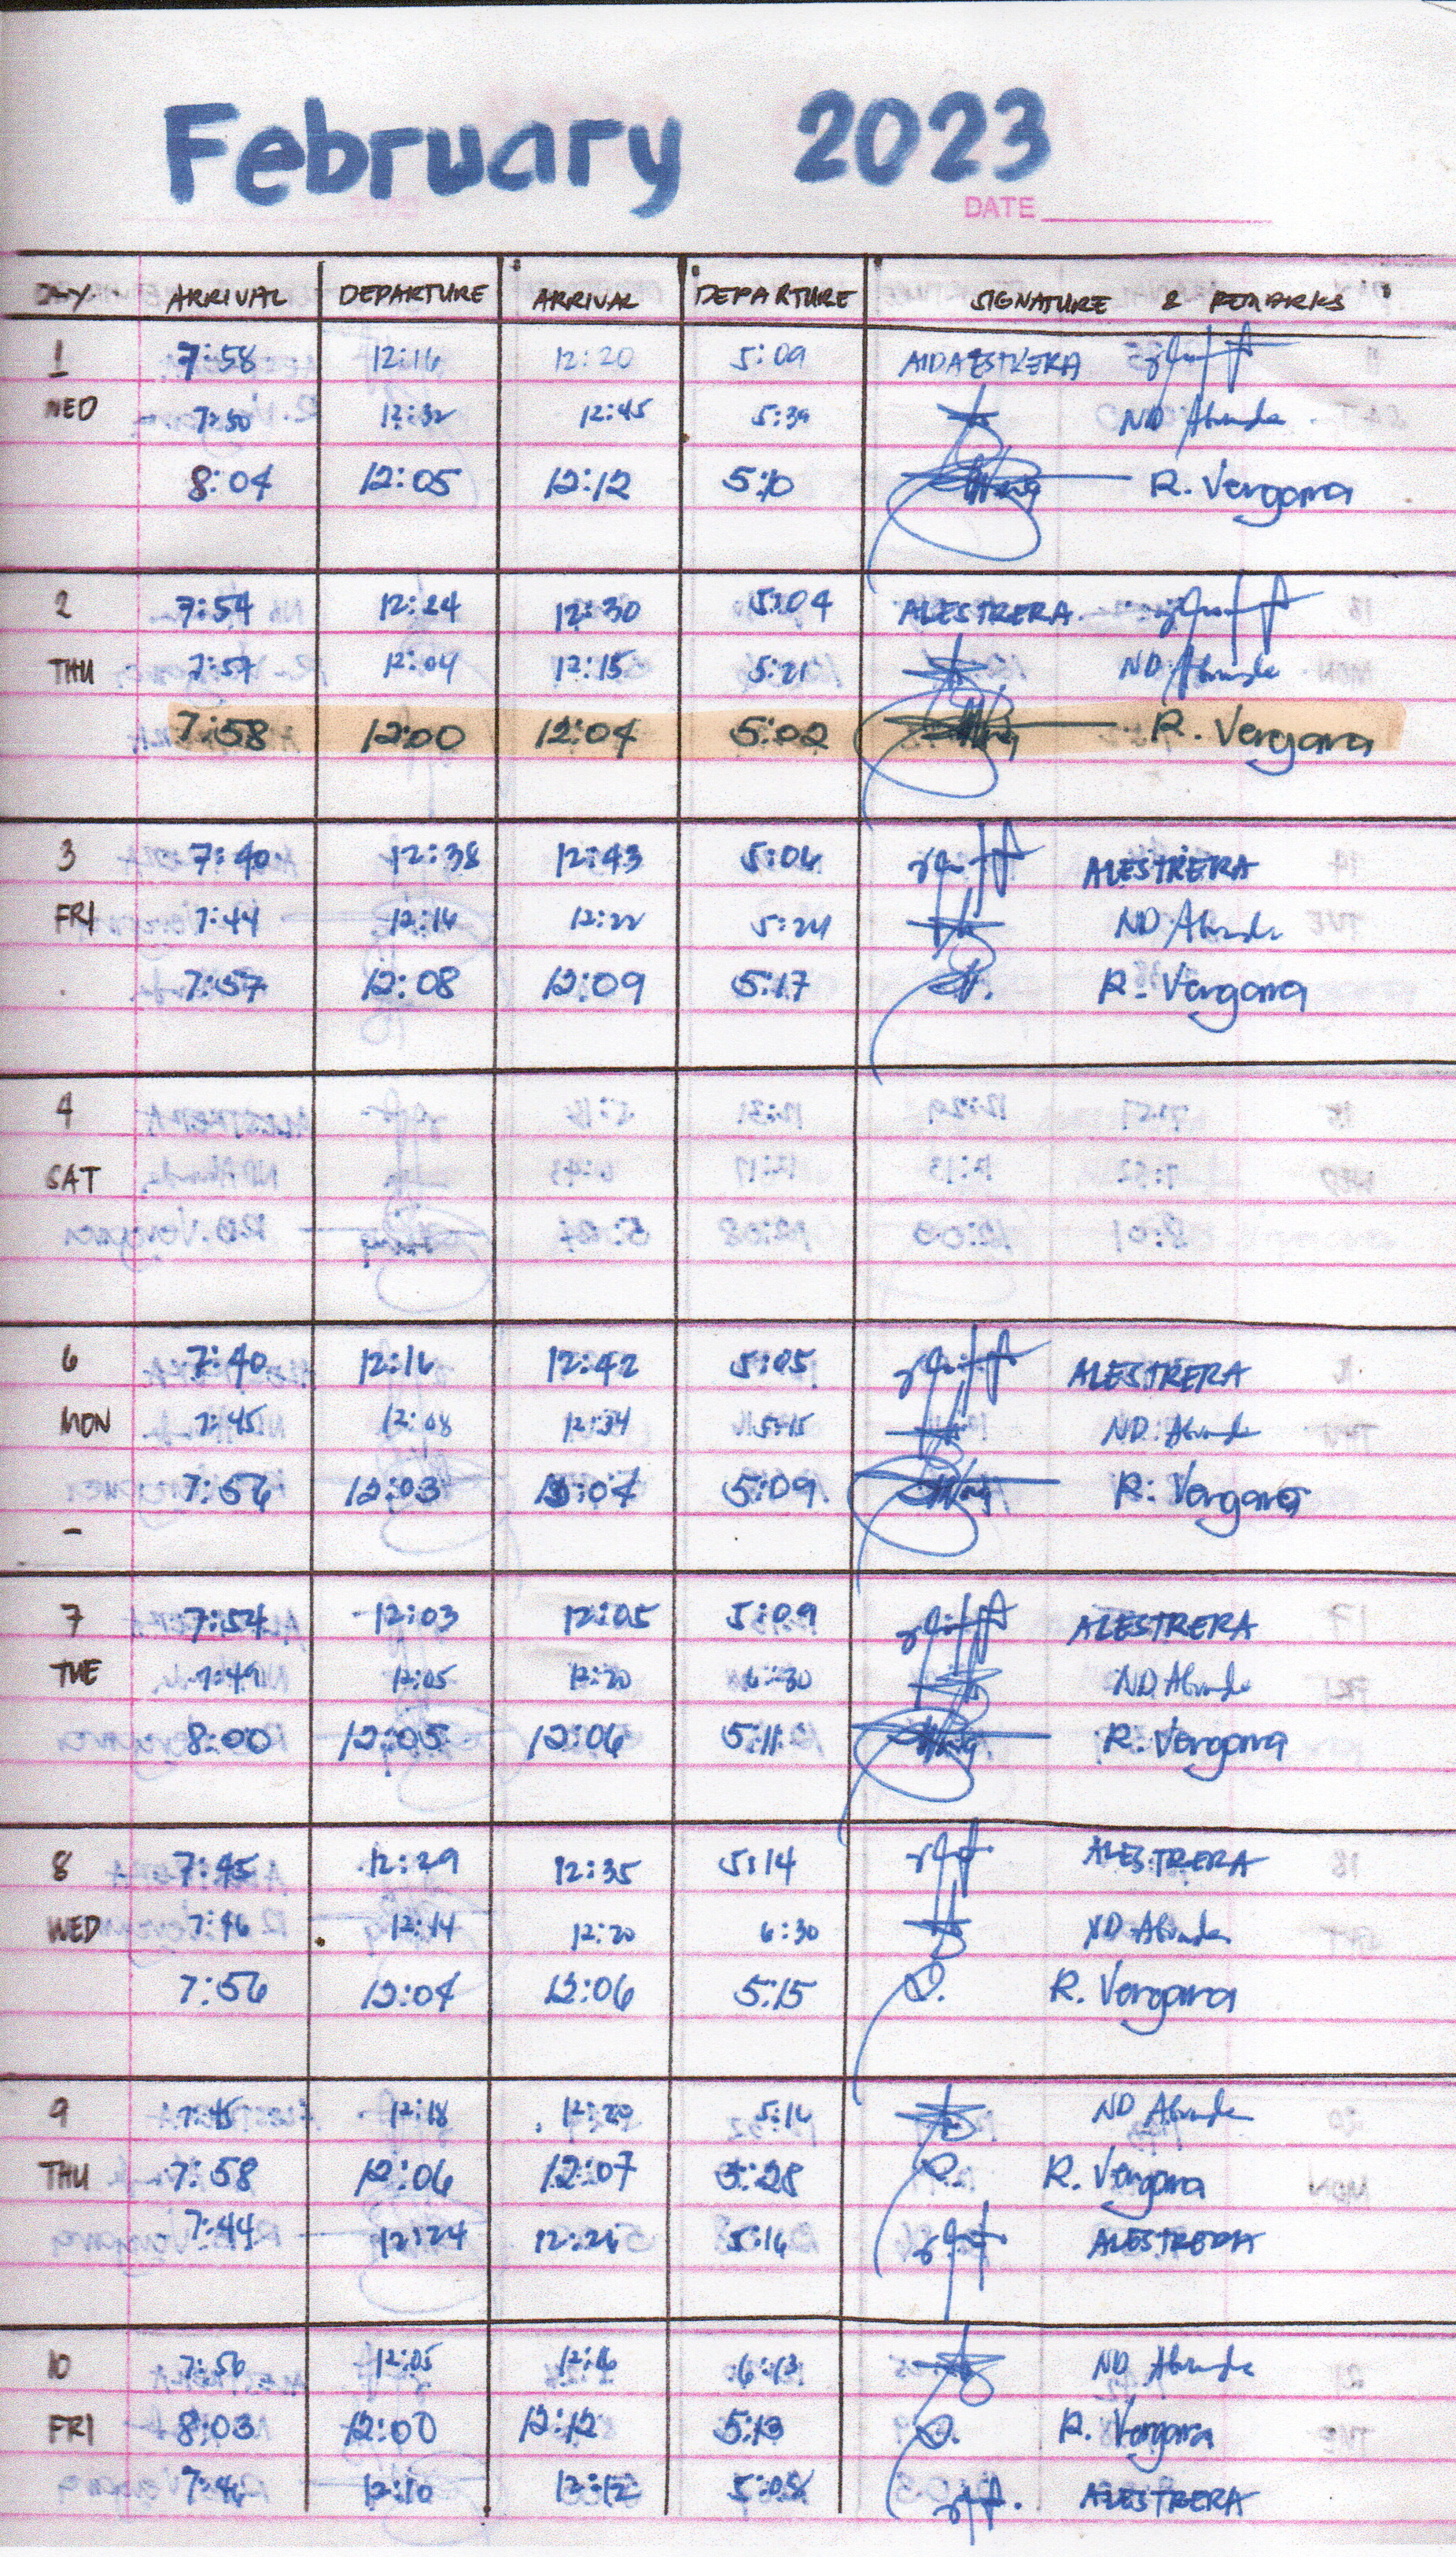 February 2023
DATE
DAY ARRIVAL DEPARTURE ARRIVAL DEPARTURE SIGNATURE & REMARKS
1 7:58 12:16 12:20 5:09 AIDA ESTRERA
WED 7:50 12:32 12:45 5:39 ND Abunda
8:04 12:05 12:12 5:10 R. Vergara
2 7:54 12:24 12:30 5:04 ALESTRERA
THU 7:57 12:04 12:15 5:21 ND Abunda
7:58 12:00 12:04 5:02 R. Vergara
3 7:40 12:38 12:43 5:06 ALESTRERA
FRI 7:44 12:16 12:22 5:24 ND Abunda
7:57 12:08 12:09 5:17 R. Vergara
4
SAT
6 7:40 12:16 12:42 5:05 ALESTRERA
MON 7:45 12:08 12:34 5:15 ND Abunda
7:56 12:03 12:04 5:09 R. Vergara
-
7 7:54 12:03 12:05 5:09 ALESTRERA
TUE 7:49 12:05 12:20 6:30 ND Abunda
8:00 12:05 12:06 5:11 R. Vergara
8 7:45 12:29 12:35 5:14 ALESTRERA
WED 7:46 12:14 12:20 6:30 ND Abunda
7:56 12:04 12:06 5:15 R. Vergara
9 7:45 12:18 12:20 5:16 ND Abunda
THU 7:58 12:06 12:07 5:28 R. Vergara
7:44 12:24 12:26 5:16 ALESTRERA
10 7:50 12:05 12:16 6:13 ND Abunda
FRI 8:03 12:00 12:12 5:13 R. Vergara
7:46 12:10 12:12 5:08 ALESTRERA